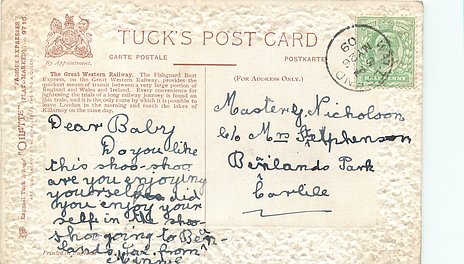 TUCK'S POST CARD
CARTE POSTALE
POSTKARTE
By Appointment.
The Great Western Railway. The Fishguard Boat
Express, on the Great Western Railway, provides the
quickest means of transit between a very large portion of
England and Wales and Ireland. Every convenience for
lightening the trials of a long railway journey is found on
this train, and it is the only route by which it is possible to
leave London in the morning and reach the lakes of
Killarney on the same day.
(FOR ADDRESS ONLY.)
Dear Baby
Do you like
this shoo-shoo
are you enjoying
yourself did
you enjoy your
self in the shoo-
shoo going to Ben-
land
from
Minnie
Master G. Nicholson
c/o Mrs Stephenson
Benlands Park
Carlile
"OILETTE"
MR 26
09
Printed in